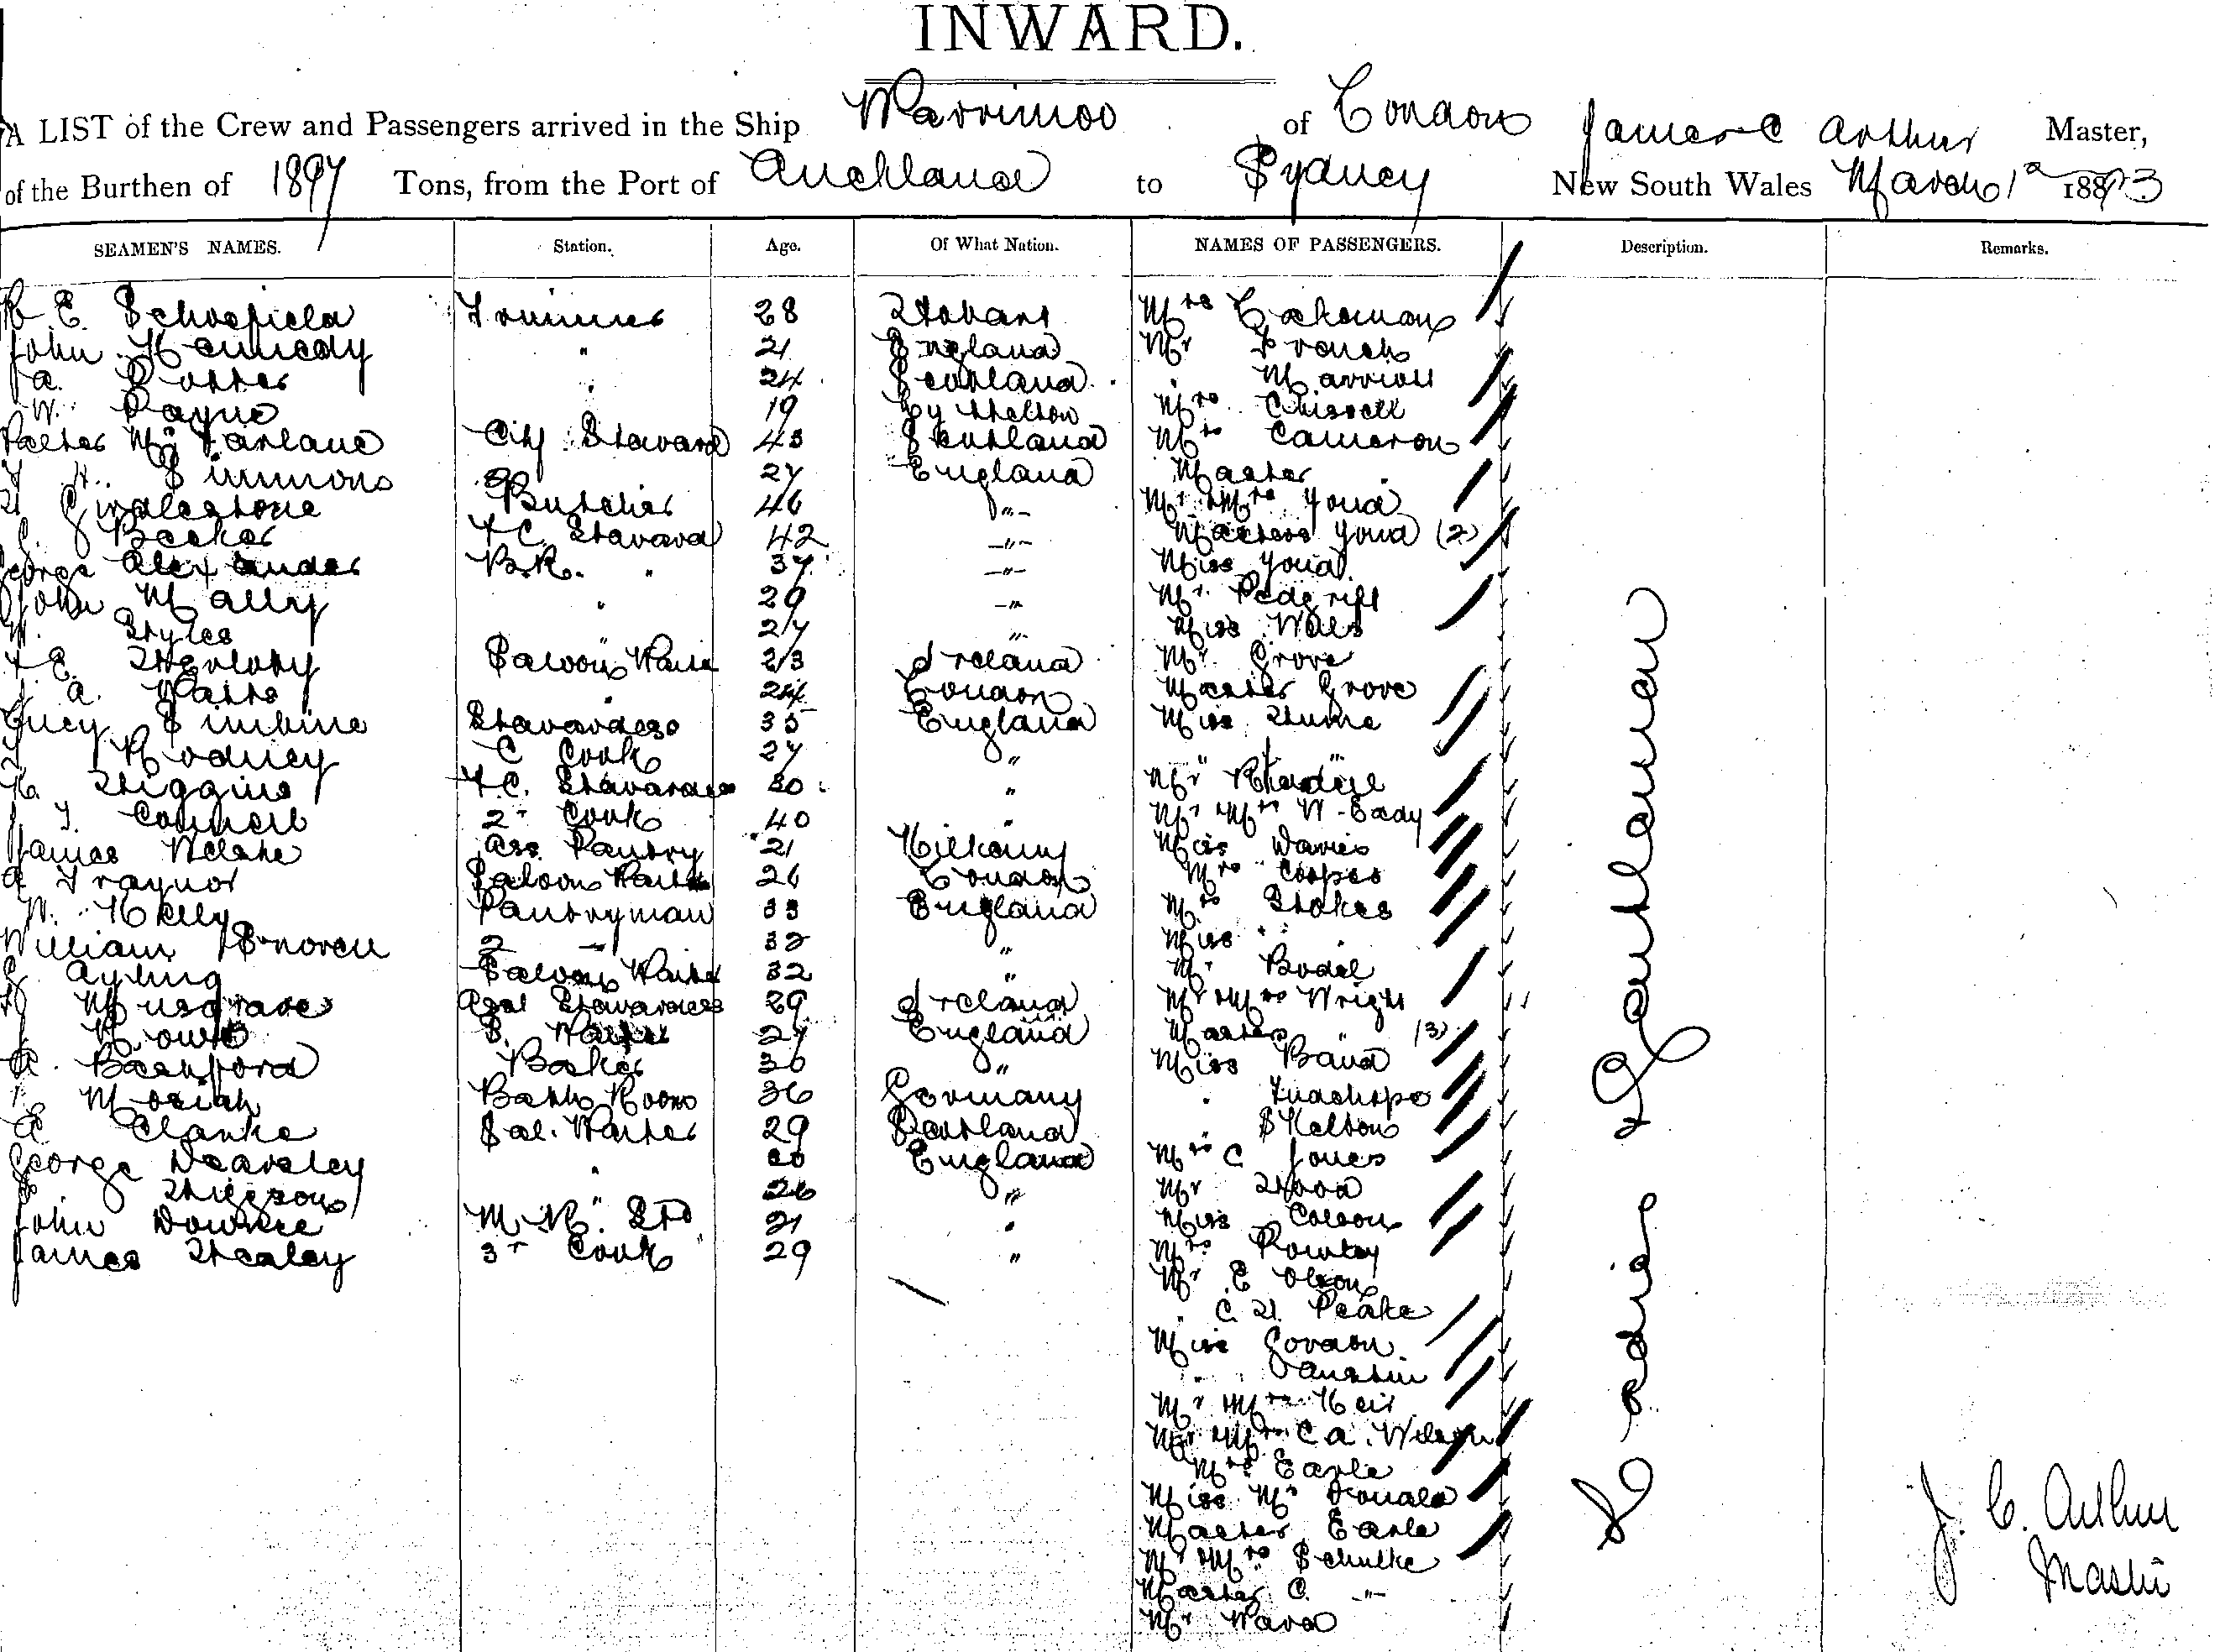 INWARD.
A LIST of the Crew and Passengers arrived in the Ship Warrimoo of London James C Arthur Master,
of the Burthen of 1897 Tons, from the Port of Auckland to Sydney New South Wales March 1st 1893
SEAMEN'S NAMES. Station. Age. Of What Nation. NAMES OF PASSENGERS. Description. Remarks.
E. Schofield Trimmer 28 Hobart Mrs
John Kennedy " 21 England Mr French
A. Potter " 24 Scotland " Marriott
W. Payne 19 Lyttelton Mrs Chissell
Walter McFarlane Chf Steward 43 Scotland Mrs Cameron
Simmons 27 England Master
Butcher 46 " Mr & Mrs Youd
Becker F C. Steward 42 " Masters Youd (2)
George Alexander B.R. " 37 " Miss Youd
John Mally " 29 " Mr Pedgrift
W. Styles " 27 " Miss
E. Saloon Waiter 23 Ireland Mr Grove
A. Watts " 24 London Master Grove
Lucy Stewardess 35 England Miss Hume
Rodney C Cook 27 "
Higgins F.C. Stewardess 30 " Mr
J. T. Connell 2nd Cook 40 " Mr & Mrs W. Eady
James Welshe Ass. Pantry 21 Kilkenny Miss Davies
A Traynor Saloon Waiter 26 London Mrs Cooper
W. Kelly Pantryman 33 England Mrs Stokes
William 2 " 32 " Miss "
Ayling Saloon Waiter 32 " Mr Bodel
Musgrave Asst Stewardess 29 Ireland Mr & Mrs Wright
S. Waiter 27 England Masters " (3)
A. Bashford Baker 30 " Miss Band
Bath Room 36 Germany "
A Clarke Sal. Waiter 29 Scotland " Skelton
George Dearsley " 20 England Mrs C Jones
Higgson " 26 " Mr Hood
John Downie M. R. Std 21 " Miss Colson
James Healey 3rd Cook 29 " Mrs Rowley
Mr E Olson
" C. H. Peake
Miss Gordon
" Austin
Mr & Mrs Keir
Mr & Mrs C A. Wilson
Mrs Earle
Miss McDonald
Master Earle
Mr & Mrs Schulke
Master C. "
Mr Ward
Ladies & Gentlemen
J. C. Arthur
Master